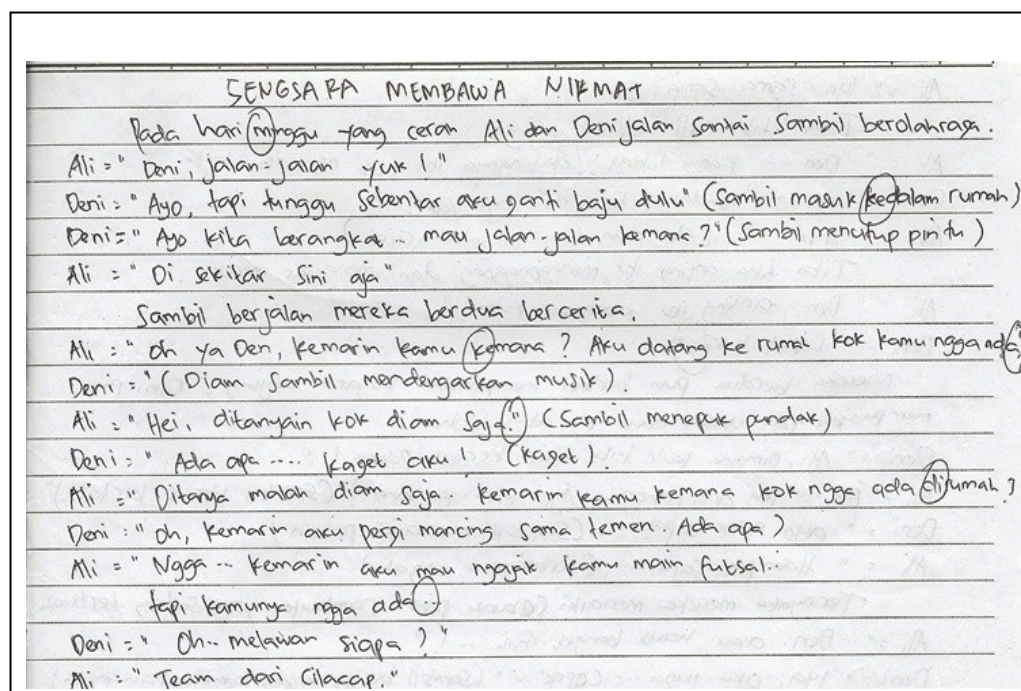 SENGSARA MEMBAWA NIKMAT
Pada hari minggu yang cerah Ali dan Deni jalan santai sambil berolahraga.
Ali = " Deni, jalan-jalan yuk !"
Deni = " Ayo, tapi tunggu sebentar aku ganti baju dulu" (sambil masuk kedalam rumah)
Deni = " Ayo kita berangkat... mau jalan-jalan kemana ?" (sambil menutup pintu)
Ali = " Di sekitar sini aja"
Sambil berjalan mereka berdua bercerita.
Ali = " oh ya Den, kemarin kamu kemana ? Aku datang ke rumah kok kamu ngga ada"
Deni = " ( Diam sambil mendengarkan musik ).
Ali = " Hei, ditanyain kok diam saja." (sambil menepuk pundak)
Deni = " Ada apa .... kaget aku (kaget).
Ali = " Ditanya malah diam saja. kemarin kamu kemana kok ngga ada dirumah ?
Deni = " oh, kemarin aku pergi mancing sama temen. Ada apa ?
Ali = " Ngga ... kemarin aku mau ngajak kamu main futsal..
tapi kamunya ngga ada..
Deni = " Oh.. melawan siapa ? "
Ali = " Team dari Cilacap."